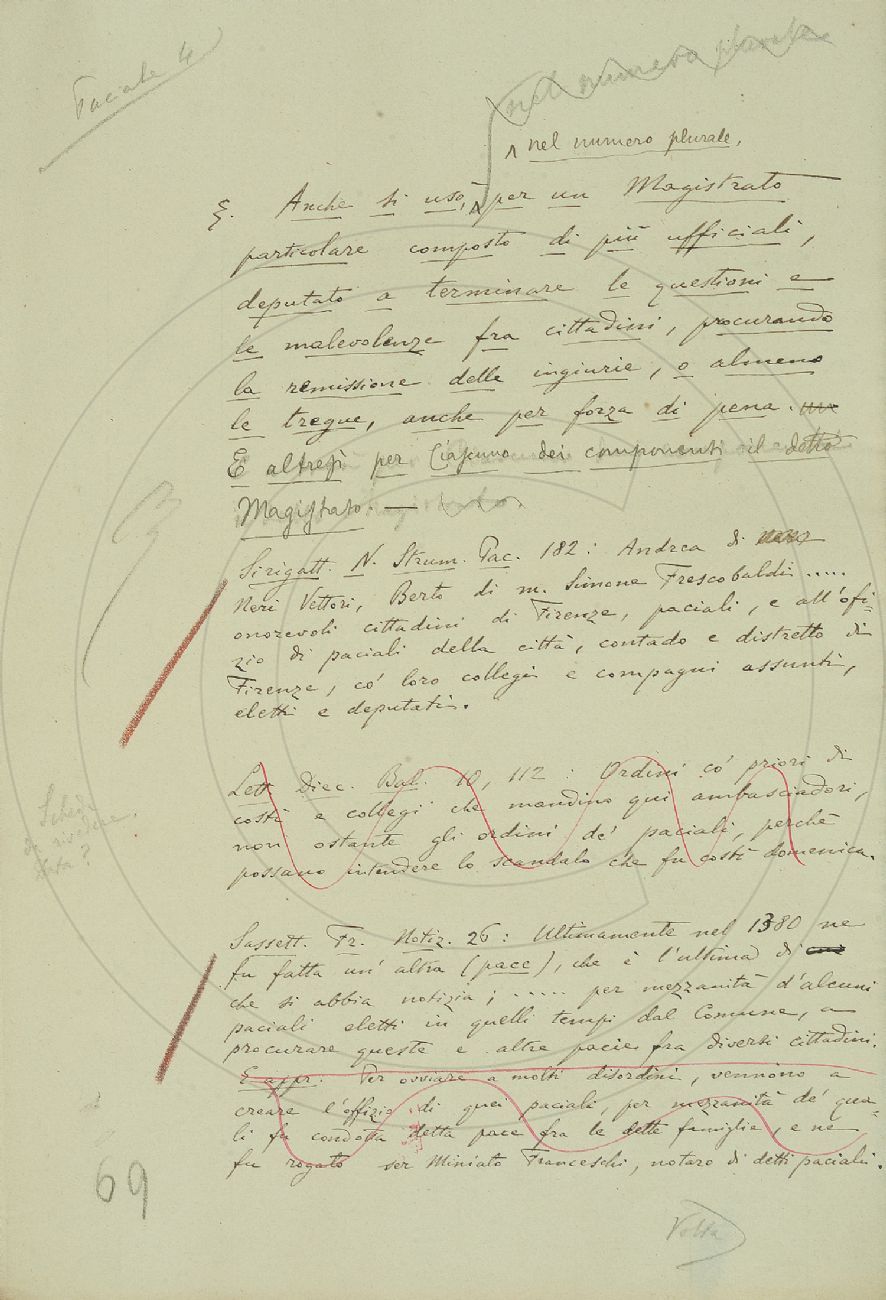 Paciale 4
nel numero plurale
nel numero plurale,
§. Anche si usò, per un Magistrato
particolare composto di più ufficiali,
deputato a terminare le questioni e
le malevolenze fra cittadini, procurando
la remissione delle ingiurie, o almeno
le tregue, anche per forza di pena.
E altresì per Ciascuno dei componenti il detto
Magistrato. —
Sirigatt. N. Strum. Pac. 182: Andrea di
Neri Vettori, Berto di m. Simone Frescobaldi.....
onorevoli cittadini di Firenze, paciali, e all'ofi=
zio di paciali della città, contado e distretto di
Firenze, co' loro collegi e compagni assunti,
eletti e deputati.
Lett. Diec. Bal. 10, 112: Ordini co' priori di
costì e collegi che mandino qui ambasciadori,
non ostante gli ordini de' paciali, perchè
possano intendere lo scandalo che fu costì domenica.
Schede
da rivedere
Sassett. Fr. Notiz. 26: Ultimamente nel 1380 ne
fu fatta un'altra (pace), che è l'ultima di
che si abbia notizia; ..... per mezzanità d'alcuni
paciali eletti in quelli tempi dal Comune, a
procurare queste e altre pacie fra diversi cittadini.
E appr.: Per ovviare a molti disordini, vennono a
creare l'offizio di quei paciali, per mezzanità de' qua-
li fu condotta detta pace fra le dette famiglie, e ne
fu rogato ser Miniato Franceschi, notaro di detti paciali.
69
Volta